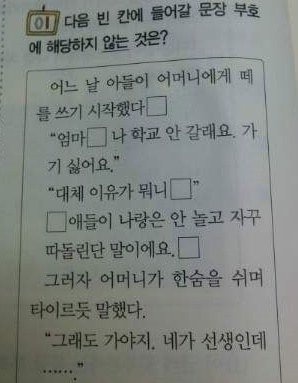 01 다음 빈 칸에 들어갈 문장 부호
에 해당하지 않는 것은?
어느 날 아들이 어머니에게 떼
를 쓰기 시작했다□
“엄마□ 나 학교 안 갈래요. 가
기 싫어요.”
“대체 이유가 뭐니□”
□애들이 나랑은 안 놀고 자꾸
따돌린단 말이에요.□
그러자 어머니가 한숨을 쉬며
타이르듯 말했다.
“그래도 가야지. 네가 선생인데
…….”